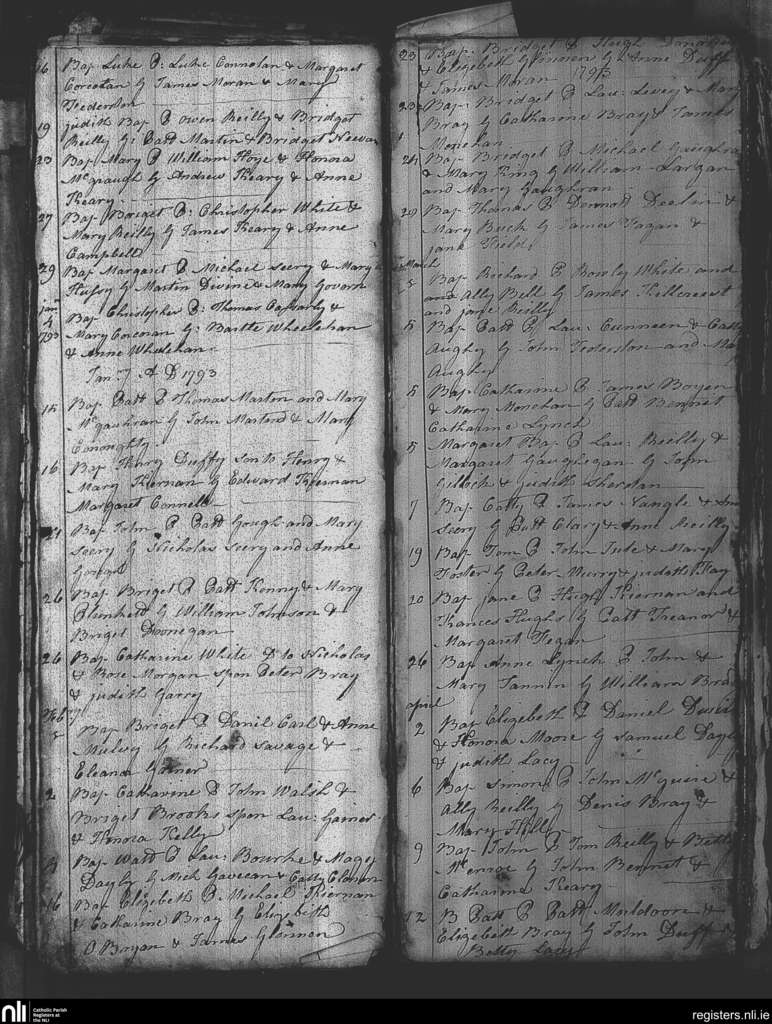 16 Bap Luke P: Luke Connolan & Margaret
Corcoran by James Moran & Mary
Feederston
19 Judith Bap P Owen Reilly & Bridget
Reilly by: Patt Martin & Bridget
23 Bap Mary P William Hoye & Honora
by Andrew Keary & Anne
Keary
27 Bap Briget P: Christopher White &
Mary Reilly by James Keary & Anne
Campbell
29 Bap Margaret P Michael Seery & Mary
Hussy by Martin Divine & Mary
Jan
4 Bap Christopher P: Thomas Casserly &
1793 Mary Corcoran by: Bartle Wheelehan
& Anne Whelehan
Jan 7 A D 1793
15 Bap Patt P Thomas Marton and Mary
Mcgauhran by John Martord & Mary
Conoughty
16 Bap Henry Duffy son to Henry &
Mary Kiernan by Edward Kiernan
Margaret Connell
24 Bap John P Patt Gough and Mary
Seery by Nicholas Seery and Anne
Gough
26 Bap Briget P Patt Kenny & Mary
Plunkett by William Johnson &
Briget Doonegan
26 Bap Catharine White D to Nicholas
& Rose Morgan spon Peter Bray
& Judith Garry
Feb
Bap Briget P Danil Earl & Anne
Mulvey by Richard Savage &
Eleanor Gainer
2 Bap Catharine P John Walsh &
Briget Brooks spon Lau: Gainer
& Honora Kelly
Bap Ward P Lau: Bourke & Magy
Dayly by Mich Gavecan & Catty
16 Bap Elizebeth P Michael Kiernan
& Catharine Bray by Elizebeth
O Bryan & James Glennon
23 Bap. Bridget P Hugh
& Elizebeth by Anne Duff
& James Moran 1793
23 Bap Bridget P Lau: Levey & Mary
Bray by Catharine Bray & James
Monehan
24 Bap Bridget P Michael Gaughran
& Mary King by William Largan
and Mary Gaughran
Bap Thomas P Dermott &
Mary Buck by James Fagan &
Jane Field
March
5 Bap Richard P Bowly White and
and Ally Bell by James Killcreest
and Jane Reilly
5 Bap Patt P Lau: Cunneen & Catty
Aughy by John Federston and
Aughy
5 Bap Catharine P James Boyen
& Mary Monehan by Patt Bennet
Catharine Lynch
5 Margaret Bap P Lau: Reilly &
Margaret Gaughegan by John
Gilleck & Judith Sheridan
7 Bap Catty P James Nangle &
Seery by Patt Clary & Anne Reilly
19 Bap Tom P John Tute & Mary
Foster by Peter Murry & Judith Ray
20 Bap Jane P Hugh Kiernan and
Frances Hughs by Patt Treanor &
Margaret Fegan
26 Bap Anne Lynch P John &
Mary Tannin by William
April
2 Bap Elizebeth P Daniel
& Honora Moore by Samuel
& Judith Lacy
6 Bap Simon P John Mcguire &
Ally Reilly by Denis Bray &
Mary Hill
9 Bap John P Tom Reilly & Betty
by John Bennet &
Catharine Keary
12 B Patt P Patt Muldoon &
Elizebeth Bray by John Duff
Betty Lacy
nli
Catholic Parish
Registers at
the NLI
registers.nli.ie